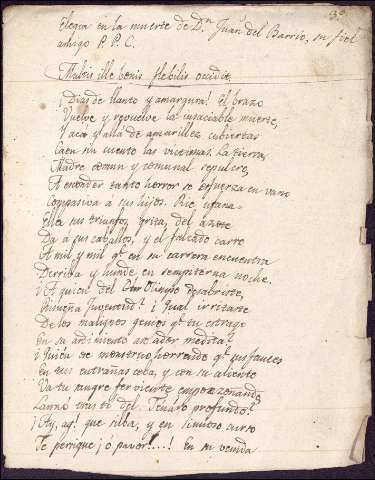 Elegia en la muerte de Dn Juan del Barrio, su fiel
amigo P. P. C.
Multis ille bonis flebilis occidit.
¡Dias de llanto y amargura! El brazo
Vuelve y revuelve la insaciable muerte,
Y acá y allá de amarillez cubiertas
Caen sin cuento las victimas. La tierra,
Madre comun y comunal sepulcro,
A esconder tanto horror se esfuerza en vano
Compasiva á sus hijos. Rie ufana
Ella sus triunfos, grita, del azote
Da á sus caballos, y el falcado carro
A mil y mil qe en su carrera encuentra
Derriba y hunde en sempiterna noche.
¿A quien del Olimpo desabriste,
Risueña Juventud? ¿Qual irritaste
De los malignos genios qe tu estrago
En su ardimiento asolador medita?
¿Quien ese monstruo horrendo qe sus fauces
En tus entrañas ceba, y con su aliento
Va tu sangre ferviente emponzoñando
Lanzó tras ti del Tenaro profundo?
¡Ay, ay! que silba, y en sinuoso curso
Te persigue ¡o pavor!...! En su